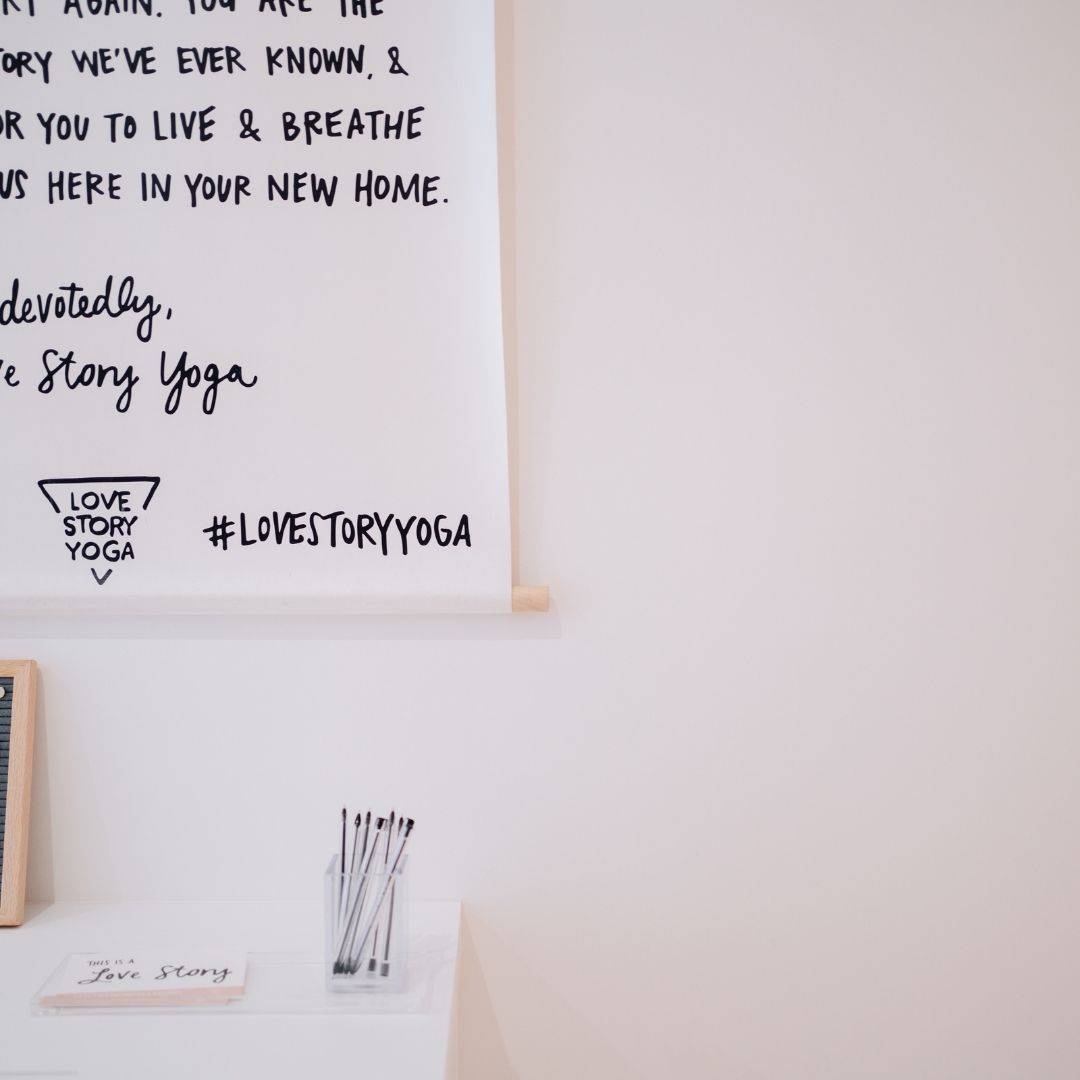 AGAIN. YOU ARE THE
WE'VE EVER KNOWN, &
YOU TO LIVE & BREATHE
US HERE IN YOUR NEW HOME.
devotedly,
Story Yoga
LOVE
STORY
YOGA
#LOVESTORYYOGA
THIS IS A
Love Story